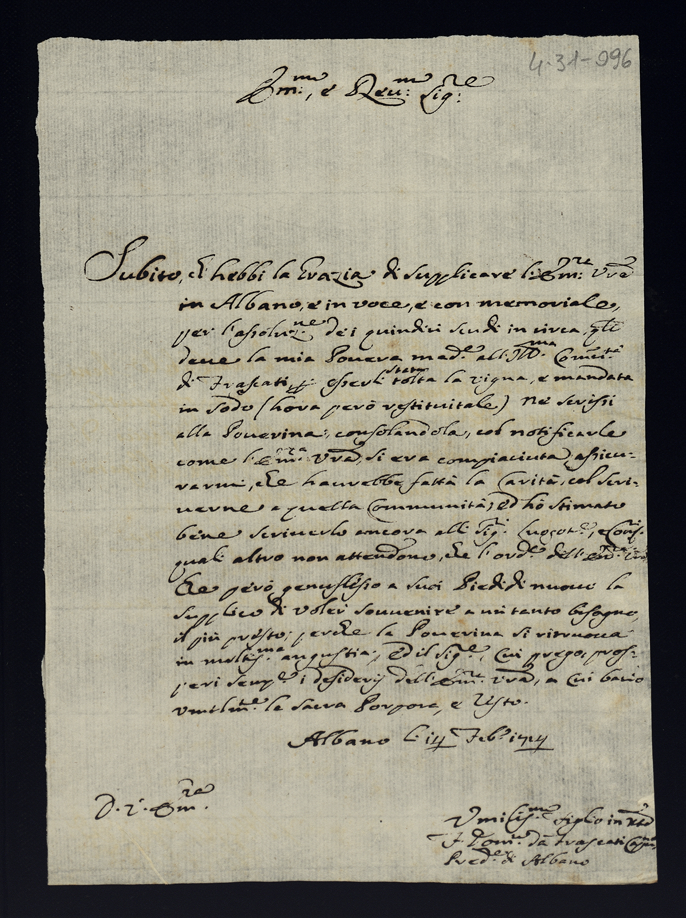 4-31-096
Em:mo, e Reu:mo Sig:re
Subito, ch' hebbi la Grazia di supplicare l'Em:za Vrã
in Albano, e in voce, e con memoriale,
per l'assoluz:ne dei quindici scudi in circa, che
deve la mia Povera mad:e all' Com:tà
di Frascati, p esserli stata tolta la vigna, e mandata
in sodo (hora però restituitale) ne scrissi
alla Poverina, consolandola, col notificarle
come l'Em:za Vrã, si era compiaciuta assicu-
rarmi, che haurebbe fatta la Carità, col scri-
uerne a quella Communità; ed hò stimato
bene scriuerlo ancora all Sig:
quali altro non attendono, che l'ord:e dell'Em:za Vrã
Che però genuflesso a suoi Piedi di nuouo la
supplico di voler souuenire a un tanto bisogno,
il più presto; perche la Pouerina si ritruoua
in molt:ma angustia; ed il Sig:e, cui prego, pros-
peri semp:e i desiderij dell'Em:za Vrã, a cui bacio
vmilm:te la Sacra Porpora, e resto.
Albano li 14 Feb:o 1714
D. V. Em:za
Vmiliss:mo figlio in
F. Dom:co da Frascati
Pred:e di Albano